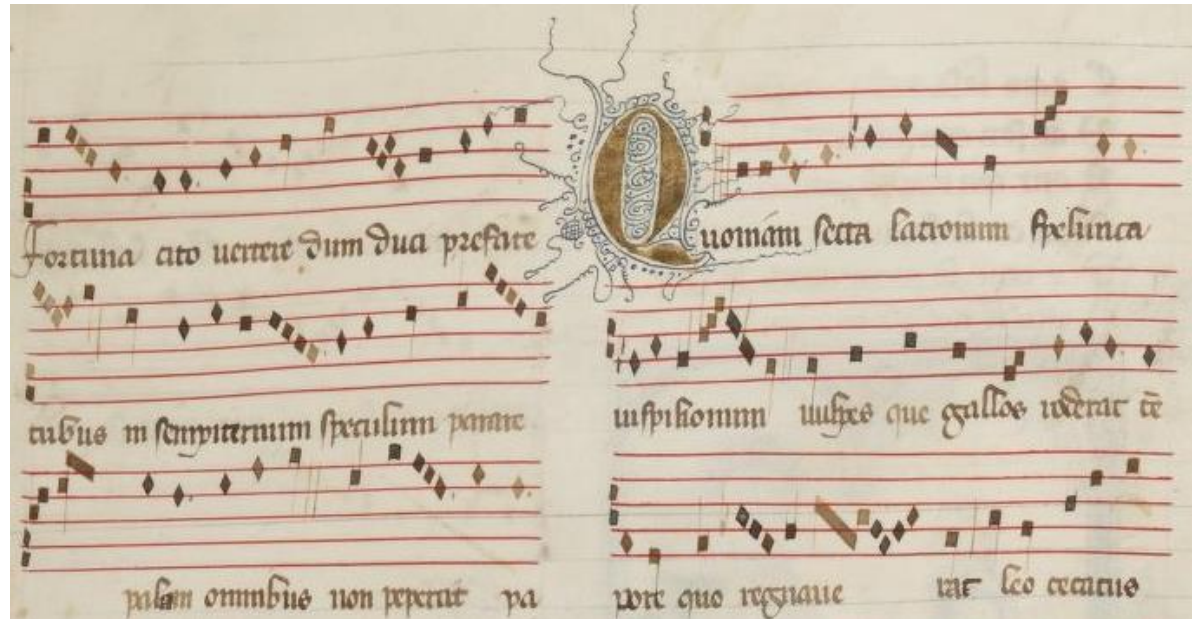 Fortuna cito uertere dum duci prefate
tribus in sempiternum speculum parare
palam omnibus non pepercit pa
Quoniam secta latronum spelunca
uispilionum uulpes que gallos roderat tē
pore quo regnaue rat leo cecatus